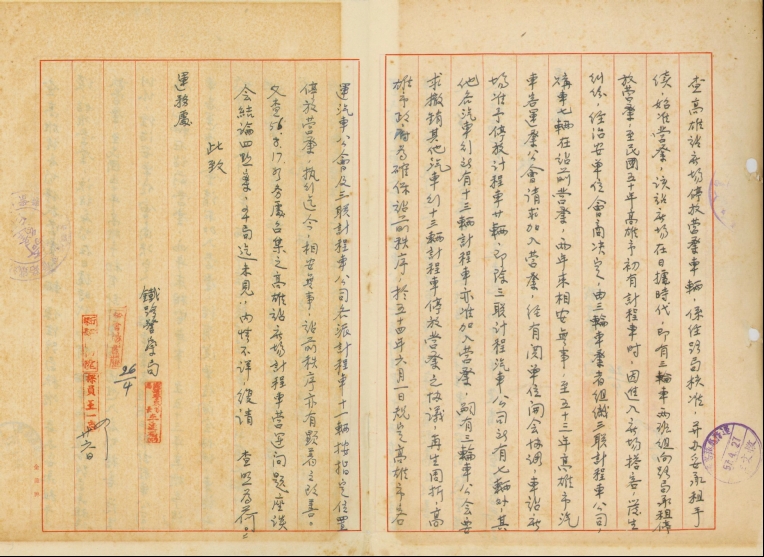 查高雄站廣場停放營業車輛，係经路局核准，并办妥承租手
续，始准營業，該站廣場在日據時代，即有三輪車两班組向路局承租停
放營業，至民國五十年高雄市初有計程車时，因進入廣場搭客，发生
糾紛，经治安單位會商决定，由三輪車業者組織三联計程車公司，
購車七輛在站前營業，两年來相安無事，至五十三年高雄市汽
車客運業公會請求加入營業，经有関單位開会協调，車站廣
場准予停放計程車廿輛，即除三联計程汽車公司設有七輛外，其
他各汽車行設有十三輛計程車亦准加入營業，嗣有三輪車公会要
求撤銷其他汽車行十三輛計程車停放營業之協議，再生周折，高
雄市政府為確保站前秩序，於五十四年六月一日規定高雄市客
運汽車公會及三联計程車公司各派計程車十一輛按指定位置
停放營業，执行迄今，相安無事，站前秩序亦有顕着之改善。
又查56.8.17.貴處召集之高雄站廣場計程車營運问題座谈
会结論四點案，本局迄未見，内情不详，復請 查照為荷。
此致
運務處
鐵路警察局
26/4
課員王一
58.4.27